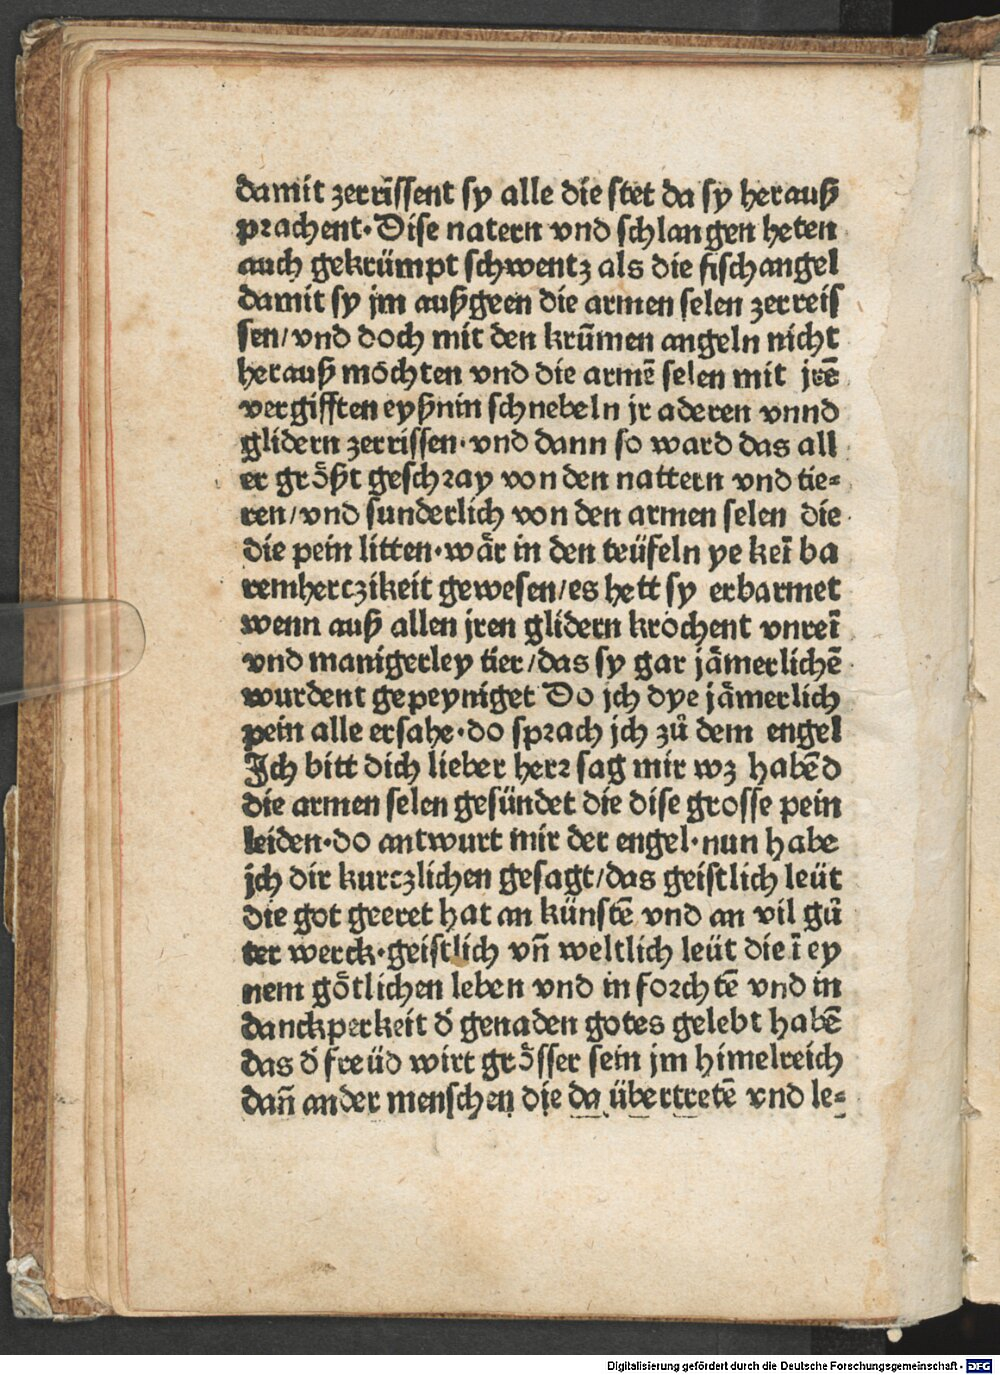 damit zerrissent sy alle die stet da sy herauß
prachent· Dise natern vnd schlangen heten
auch gekrümpt schwentz als die fischangel
damit sy jm außgeen die armen selen zerreis
sen/vnd doch mit den krūmen angeln nicht
herauß möchten vnd die armē selen mit jrē
vergifften eyßnin schnebeln jr aderen vnnd
glidern zerrissen· vnd dann so ward das all
er grȫßt geschray von den nattern vnd tie⸗
ren/vnd sunderlich von den armen selen die
die pein litten· wär in den teüfeln ye keī ba
remherczikeit gewesen/es hett sy erbarmet
wenn auß allen jren glidern krochent vnreī
vnd manigerley tier/das sy gar jämerlichē
wurdent gepeyniget Do jch dye jämerlich
pein alle ersahe· do sprach jch zů dem engel
Ich bitt dich lieber herr sag mir wz habēd
die armen selen gesündet die dise grosse pein
leiden· do antwurt mir der engel· nun habe
jch dir kurczlichen gesagt/das geistlich leüt
die got geeret hat an künstē vnd an vil gů
ter werck· geistlich vn̄ weltlich leüt die ī ey
nem götlichen leben vnd in forchtē vnd in
danckperkeit d̄ genaden gotes gelebt habē
das d̄ freüd wirt grösser sein jm himelreich
dan̄ ander menschen die da übertretē vnd le⸗
Digitalisierung gefördert durch die Deutsche Forschungsgemeinschaft · DFG